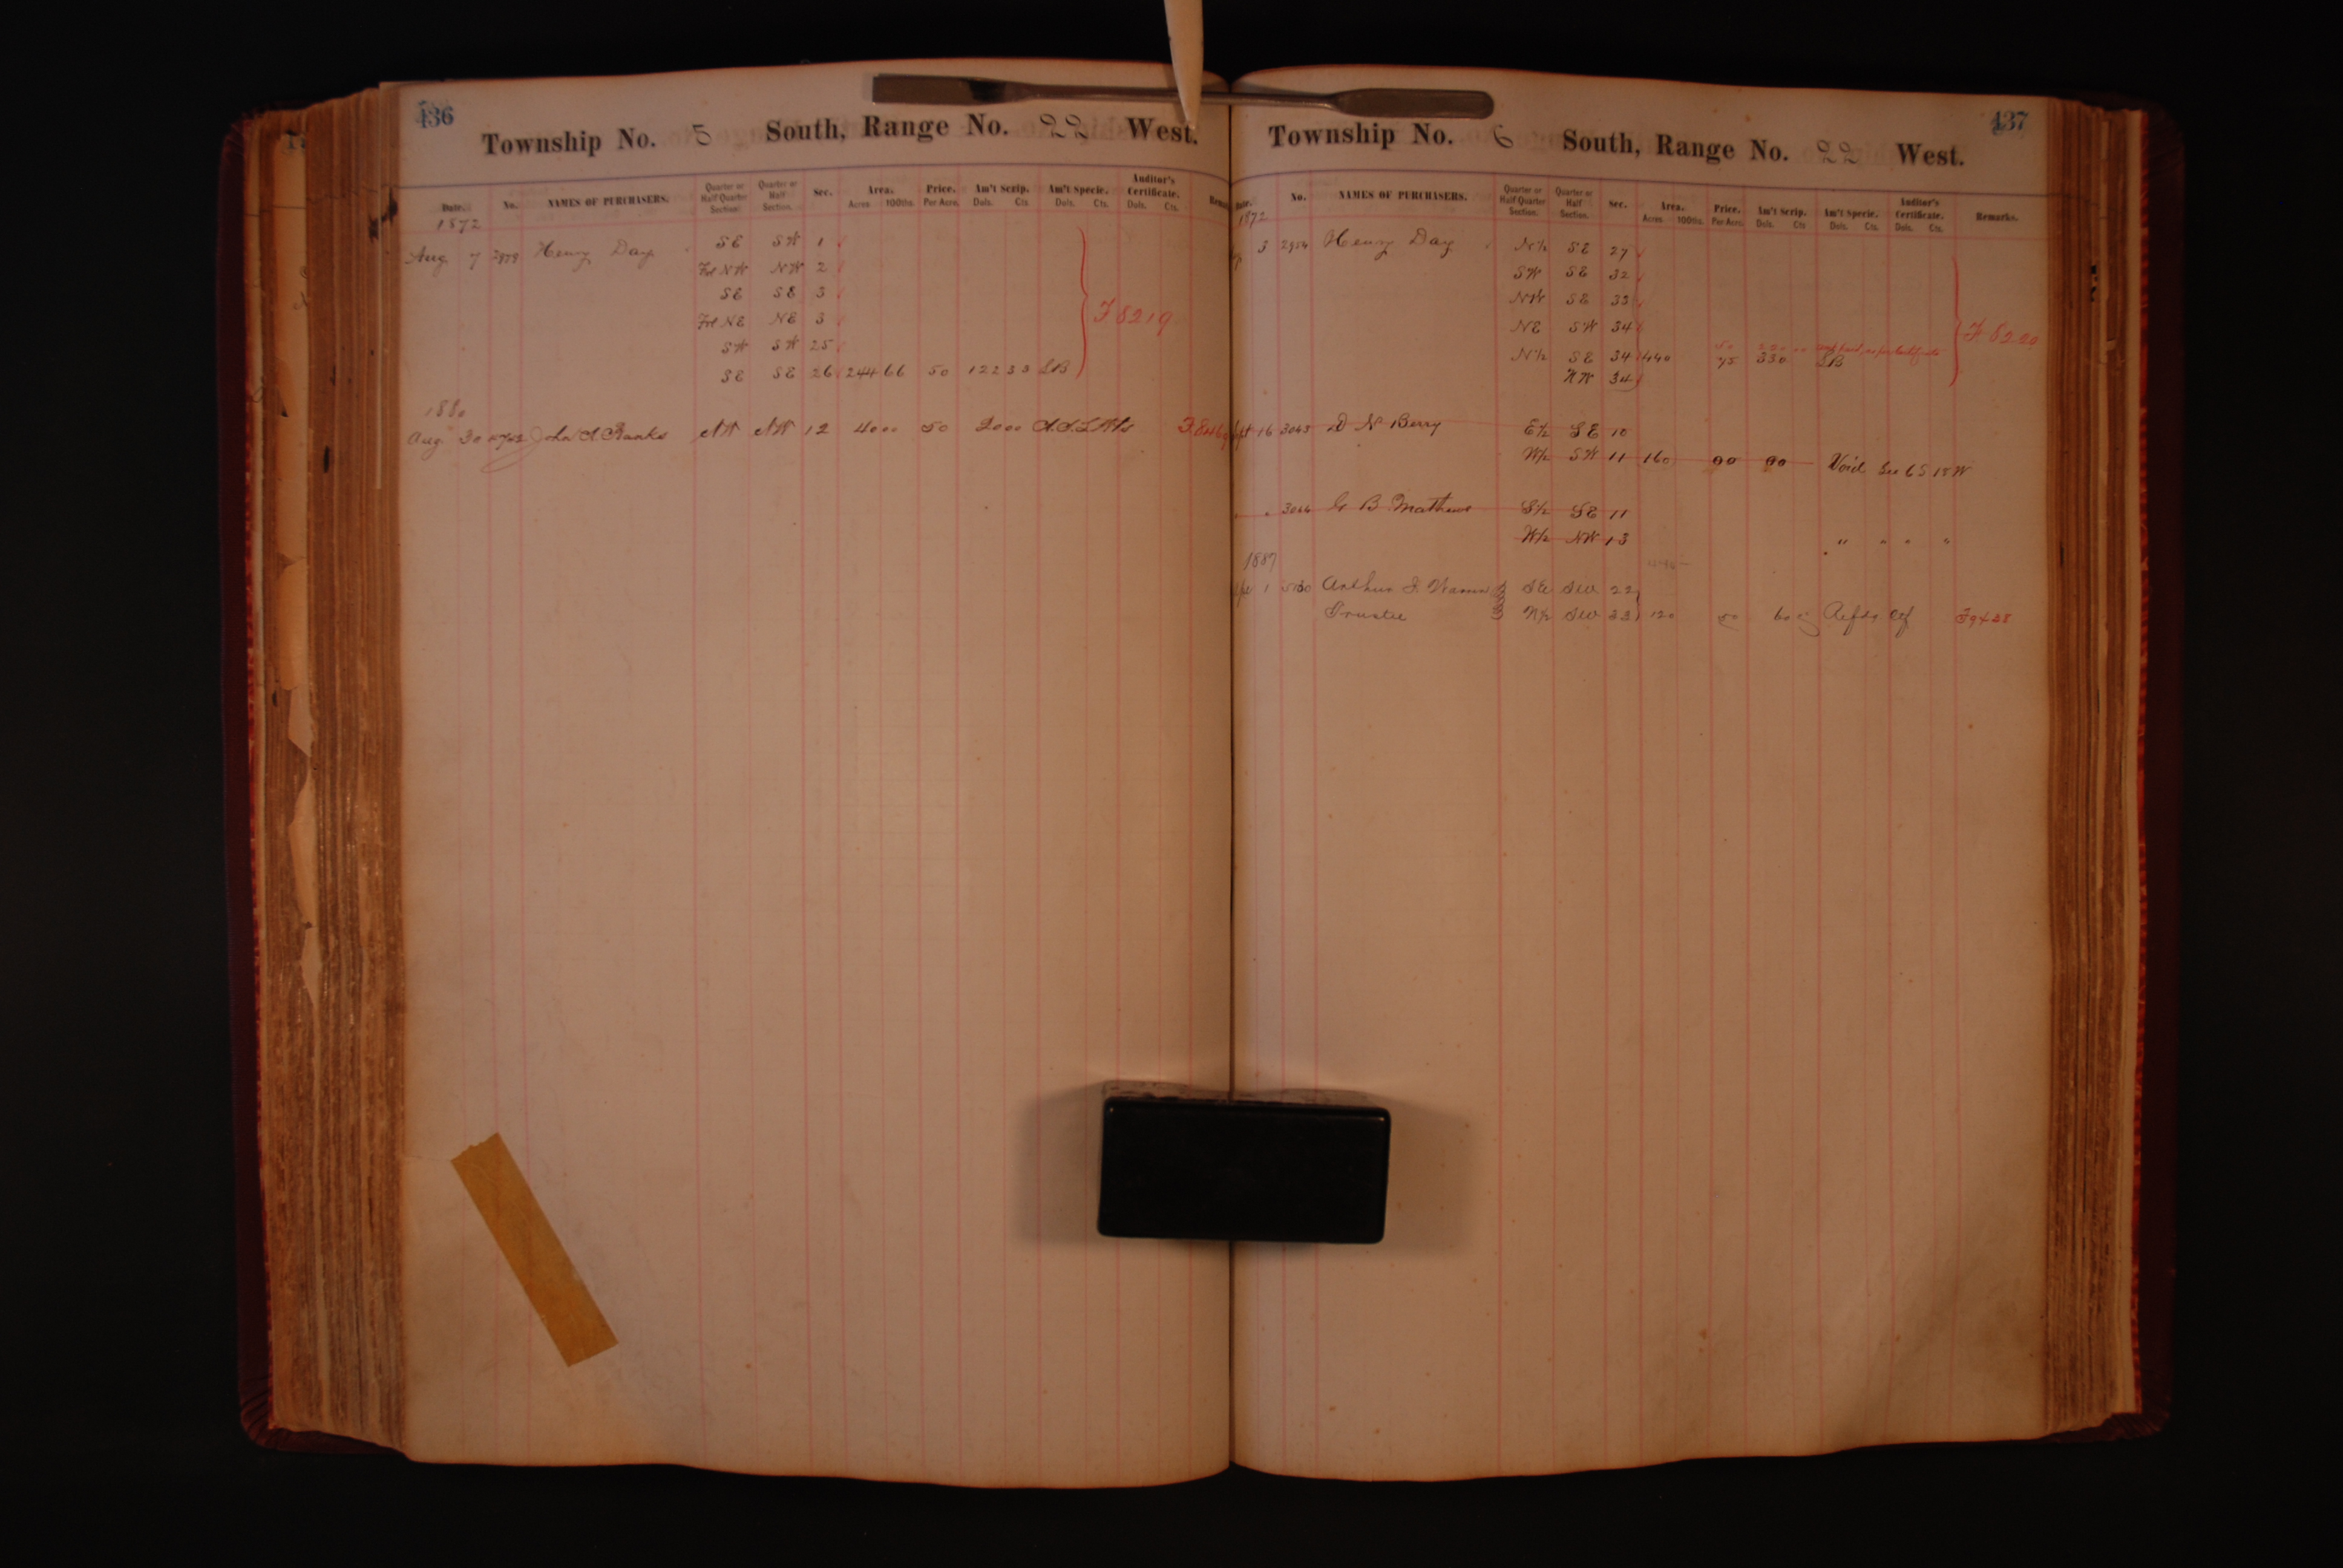 436
Township No. 5 South, Range No. 22 West.
Date. No. NAMES OF PURCHASERS. Quarter or Half Quarter Section. Quarter or Half Section. Sec. Area. Acres 100ths. Price. Per Acre. Am't Scrip. Dols. Cts Am't Specie. Dols. Cts. Auditor's Certificate. Dols. Cts.
1872
Aug 7 2979 Henry Day SE SW 1
Frl NW NW 2
SE SE 3
Frl NE NE 3
F 8219
SW SW 25
SE SE 26 244 66 50 122 33 LB
1880
Aug 30 John Banks NW NW 12 40 00 50 20 00
437
Township No. 6 South, Range No. 22 West.
Date. No. NAMES OF PURCHASERS. Quarter or Half Quarter Section. Quarter or Half Section. Sec. Area. Acres. 100ths. Price. Per Acre. Am't Scrip. Dols. Cts Am't Specie. Dols. Cts. Auditor's Certificate. Dols. Cts. Remarks.
1872
3 2954 Henry Day N½ SE 27
SW SE 32
NW SE 33
NE SW 34
F 8220
50 220
N½ SE 34 440 75 330 LB
NW 34
Sept 16 3063 D N Berry E½ SE 10
W½ SW 11 160 90 90 Void See 6 S 18 W
" 3064 G B Mathews S½ SE 11
W½ NW 13 " " " "
1887
1 Arthur Trustee SE SW 22
N½ SW 23 120 50 60